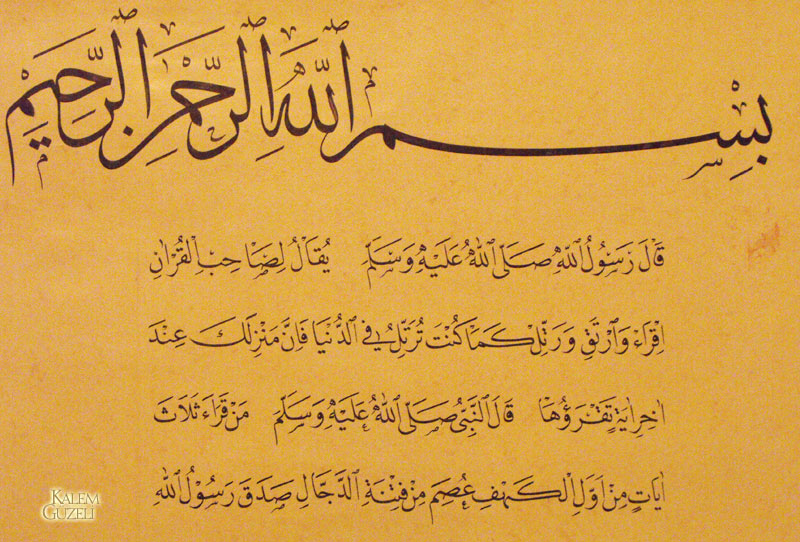 بِسْمِ اللّٰهِ الرَّحْمٰنِ الرَّحِيمِ
قَالَ رَسُولُ اللّٰهِ صَلَّى اللّٰهُ عَلَيْهِ وَسَلَّمَ يُقَالُ لِصَاحِبِ الْقُرْاٰنِ
اِقْرَاءْ وَارْتَقِ وَرَتِّلْ كَمَا كُنْتَ تُرَتِّلُ فِي الدُّنْيَا فَاِنَّ مَنْزِلَكَ عِنْدَ
اٰخِرِ اٰيَةٍ تَقْرَؤُهَا قَالَ النَّبِيُّ صَلَّى اللّٰهُ عَلَيْهِ وَسَلَّمَ مَنْ قَرَاءَ ثَلَاثَ
اٰيَاتٍ مِنْ اَوَّلِ الْكَهْفِ عُصِمَ مِنْ فِتْنَةِ الدَّجَّالِ صَدَقَ رَسُولُ اللّٰهِ
KALEM
GÜZELI